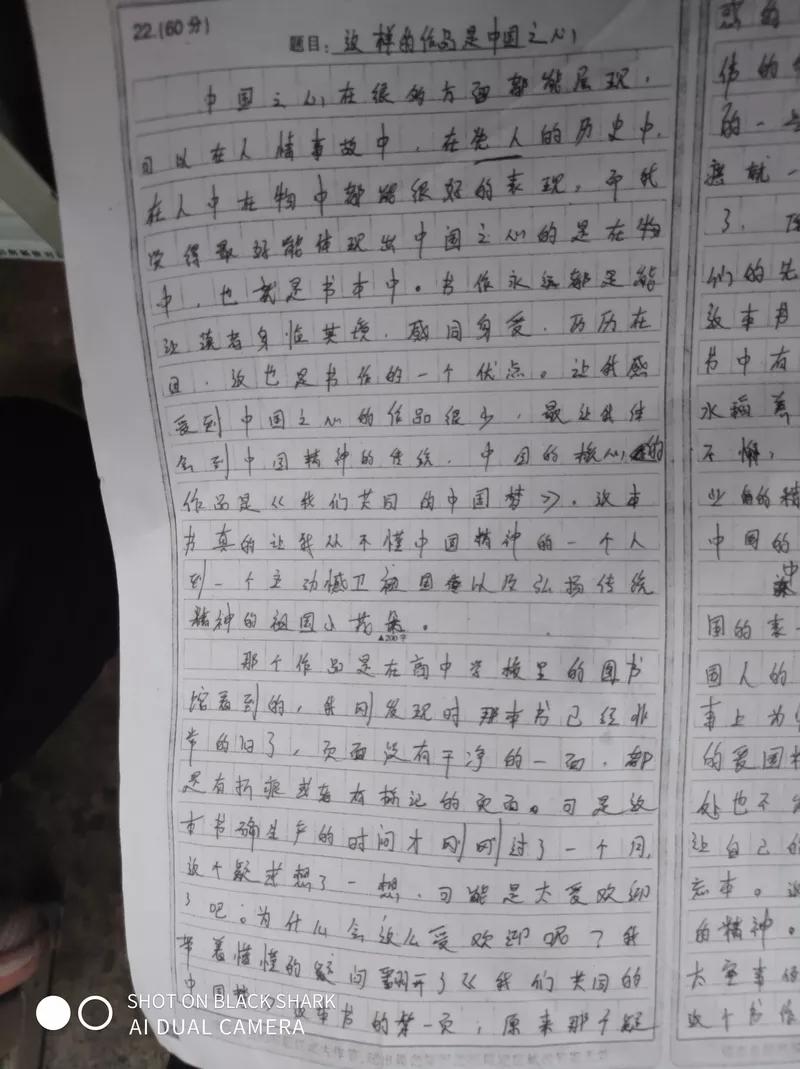 22.(60分)
题目：这样的作品是中国之心
中国之心在很多方面都能展现，
可以在人情事故中，在党人的历史中，
在人中在物中都能很好的表现，而我
觉得最好能体现出中国之心的是在物
中，也就是书本中。书作永远都是能
让读者身临其境，感同身受，历历在
目，这也是书作的一个优点。让我感
受到中国之心的作品很少，最让我体
会到中国精神的传统，中国的核心的
作品是《我们共同的中国梦》。这本
书真的让我从不懂中国精神的一个人
到一个主动憾卫祖国以及弘扬传统
精神的祖国小花朵。
▲200字
那个作品是在高中学校里的图书
馆看到的，我刚发现时那本书已经非
常的旧了，页面没有干净的一面，都
是有折痕或者有标记的页面。可是这
本书确生产的时间才刚刚过了一个月，
这个疑惑想了一想，可能是太受欢迎
了吧。为什么会这么受欢迎呢？我
带着懵懂的疑问翻开了《我们共同的
中国梦》这本书的第一页，原来那个疑
惑的
伟的
的一
就一
了，
们的先
这本书
书中有
水稻
不懈，
业的精
中国的
中
国的表
国人的
事上为
的爱国
处也不
让自己的
忘本。
的精神。
太空事
这个书作
SHOT ON BLACK SHARK
AI DUAL CAMERA